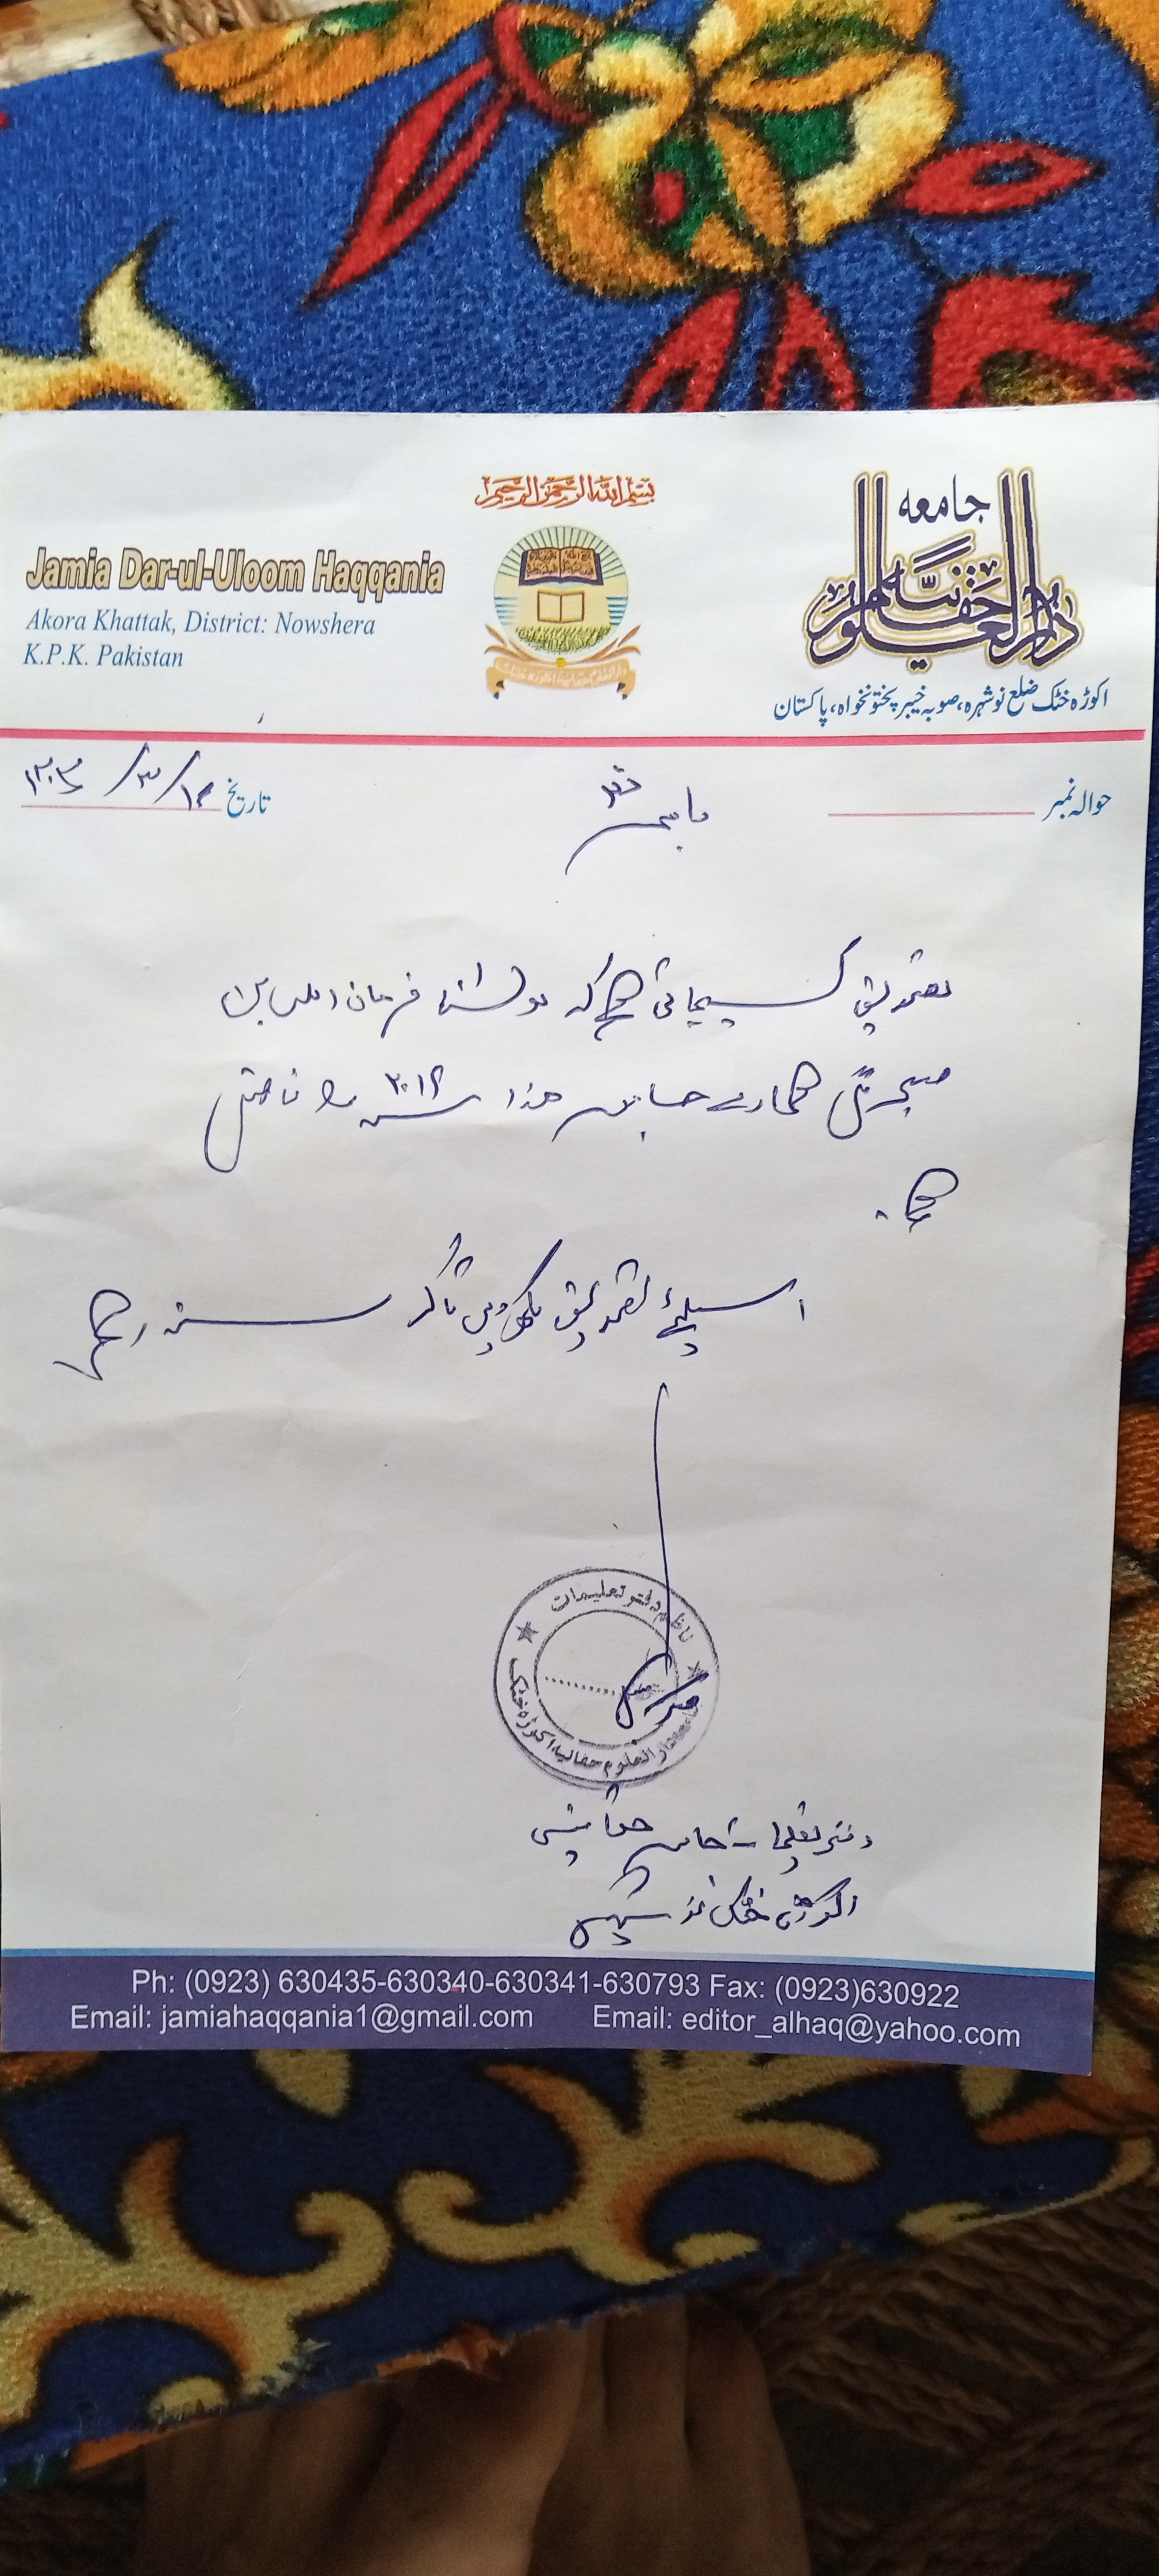 بسم الله الرحمن الرحيم
Jamia Dar-ul-Uloom Haqqania
Akora Khattak, District: Nowshera
K.P.K. Pakistan
جامعہ
دارالعلوم حقانیہ
اکوڑہ خٹک ضلع نوشہرہ، صوبہ خیبر پختونخواہ، پاکستان
حوالہ نمبر
تاریخ
باسمہ
تصدیق کیجاتی ہے کہ فرمان اللہ
ہمارے جامعہ ھذا سنہ ۲۰۱۹ فاضل
ہے۔
اسلیئے تصدیق لکھ دی تاکہ سند رہے
ناظم دفتر تعلیمات
جامعہ دارالعلوم حقانیہ اکوڑہ خٹک
دفتر تعلیمات جامعہ حقانیہ
اکوڑہ خٹک نوشہرہ
Ph: (0923) 630435-630340-630341-630793 Fax: (0923)630922
Email: jamiahaqqania1@gmail.com Email: editor_alhaq@yahoo.com